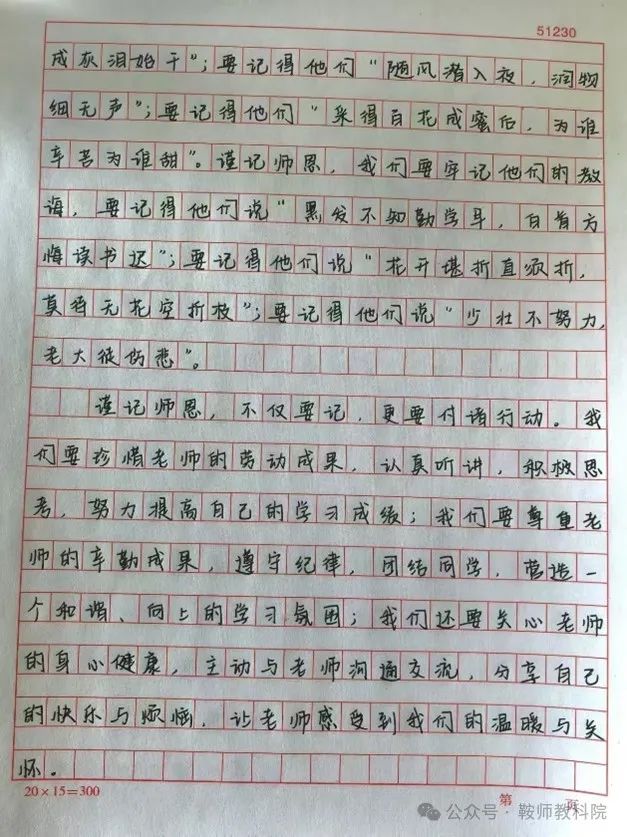 51230
成灰泪始干”；要记得他们“随风潜入夜，润物
细无声”；要记得他们“采得百花成蜜后，为谁
辛苦为谁甜”。谨记师恩，我们要牢记他们的教
诲，要记得他们说“黑发不知勤学早，白首方
悔读书迟”；要记得他们说“花开堪折直须折，
莫待无花空折枝”；要记得他们说“少壮不努力，
老大徒伤悲”。
谨记师恩，不仅要记，更要付诸行动。我
们要珍惜老师的劳动成果，认真听讲，积极思
考，努力提高自己的学习成绩；我们要尊重老
师的辛勤成果，遵守纪律，团结同学，营造一
个和谐、向上的学习氛围；我们还要关心老师
的身心健康，主动与老师沟通交流，分享自己
的快乐与烦恼，让老师感受到我们的温暖与关
怀。
20×15=300
第 页
公众号·鞍师教科院